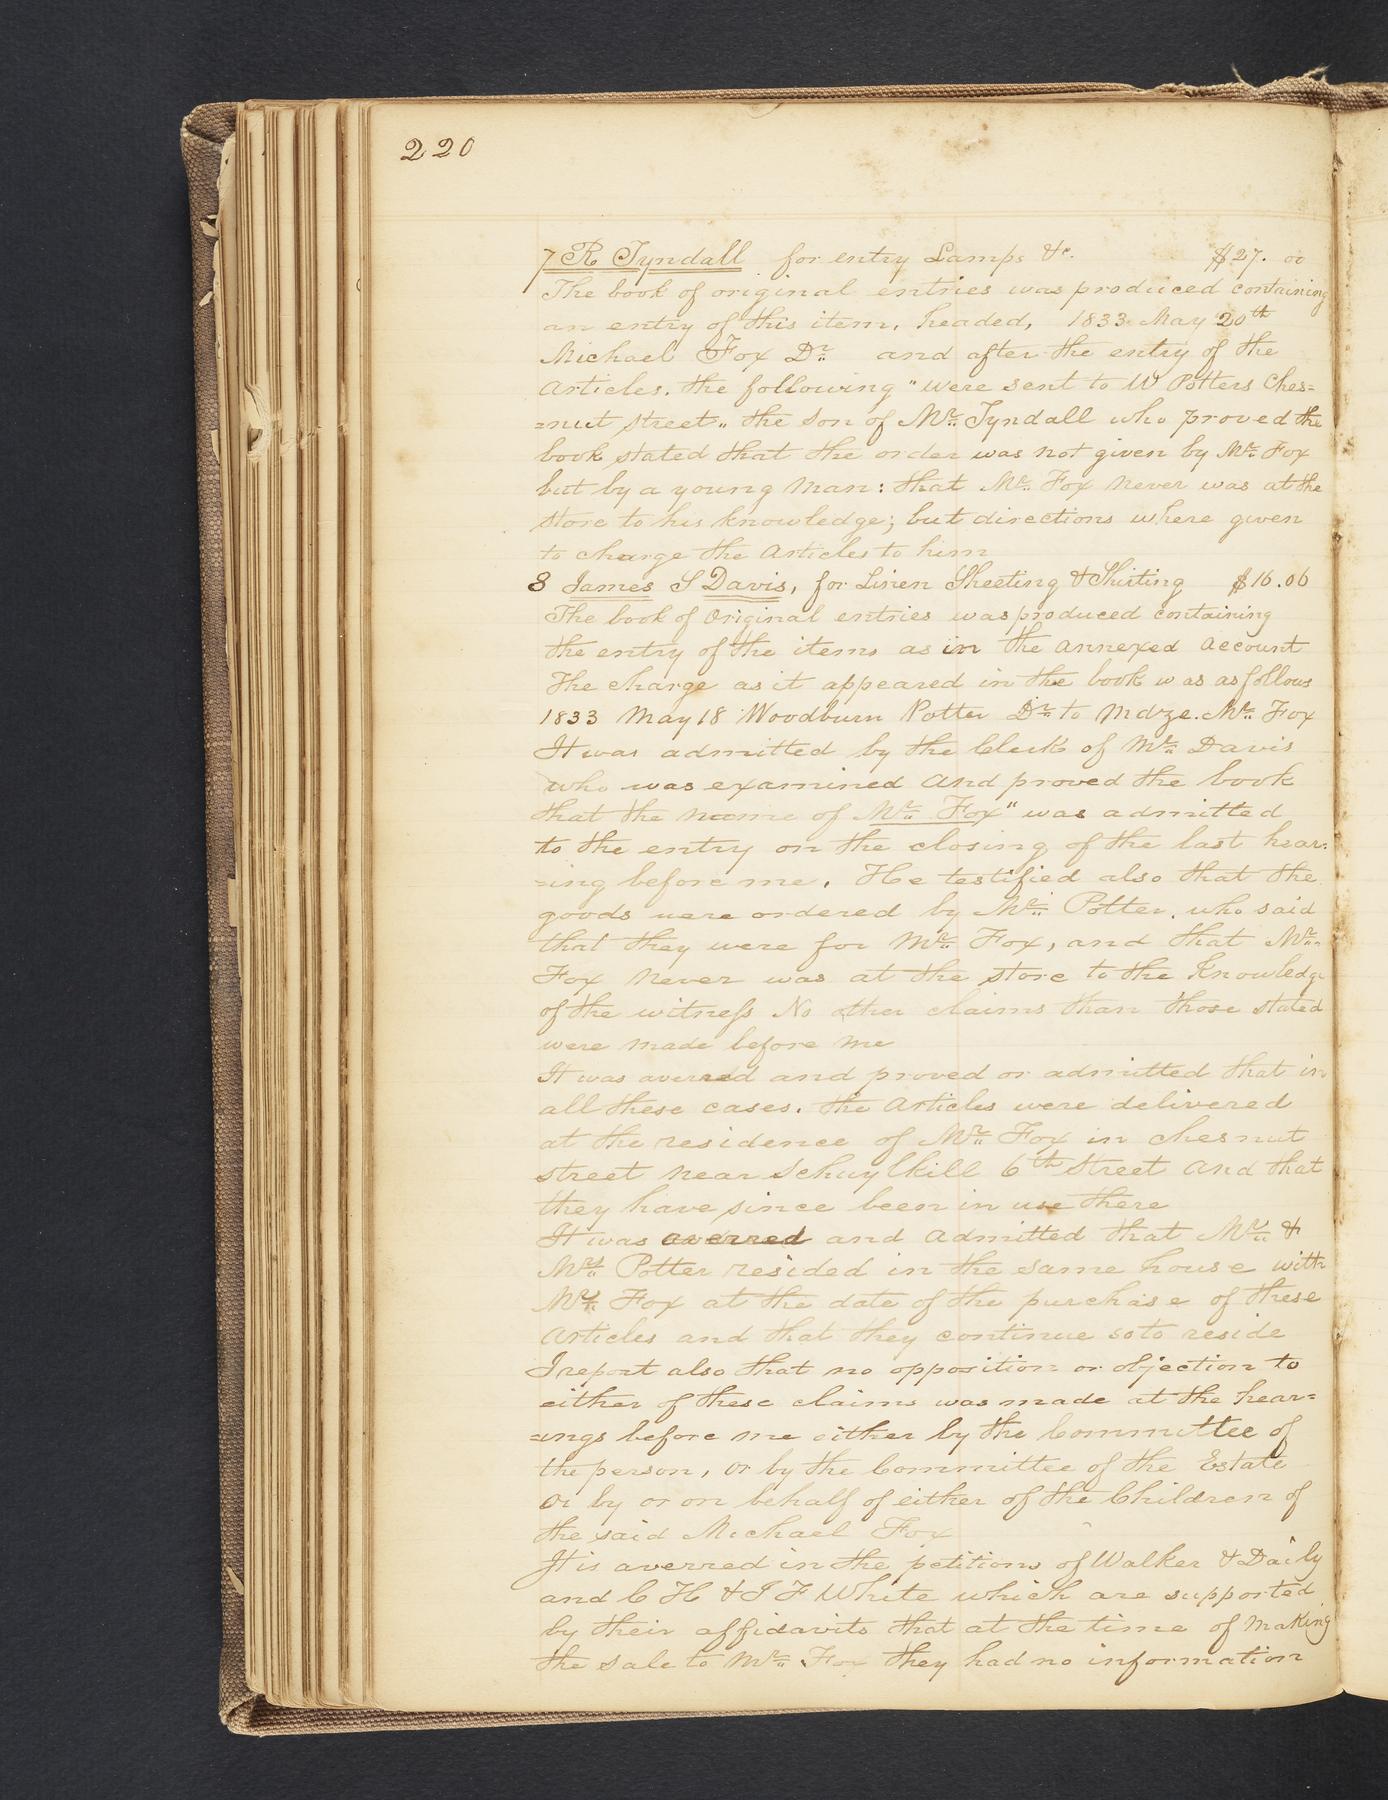 220
7 R Tyndall for entry Lamps &c. $27.00
The book of original entries was produced containing
an entry of this item, headed, 1833 May 20th
Michael Fox Dr and after the entry of the
Articles. the following "were sent to W Potters Ches=
=nut street„ the son of Mr Tyndall who proved the
book stated that the order was not given by Mr Fox
but by a young man: that Mr Fox never was at the
store to his knowledge; but directions where given
to charge the Articles to him
8 James S Davis, for Linen Sheeting & Shirting $16.06
The book of Original entries was produced containing
the entry of the items as in the annexed account
The charge as it appeared in the book was as follows
1833 May 18 Woodburn Potter Dr to Mdze. Mr Fox
It was admitted by the Clerk of Mr Davis
who was examined and proved the book
that the name of Mr Fox" was admitted
to the entry on the closing of the last hear=
=ing before me. He testified also that the
goods were ordered by Mr Potter, who said
that they were for Mr Fox, and that Mr
Fox never was at the store to the Knowledge
of the witness No other claims than those stated
were made before me
It was averred and proved or admitted that in
all these cases. the Articles were delivered
at the residence of Mr Fox in chesnut
street near Schuylkill 6th Street and that
they have since been in use there
It was averred and admitted that Mr &
Mrs Potter resided in the same house with
Mr Fox at the date of the purchase of these
Articles and that they continue so to reside
I report also that no opposition or objection to
either of these claims was made at the hear=
=ings before me either by the Committee of
the person, or by the Committee of the Estate
or by or on behalf of either of the Children of
the said Michael Fox
It is averred in the petitions of Walker & Daily
and C H & J F White which are supported
by their affidavits that at the time of making
the sale to Mr Fox they had no information